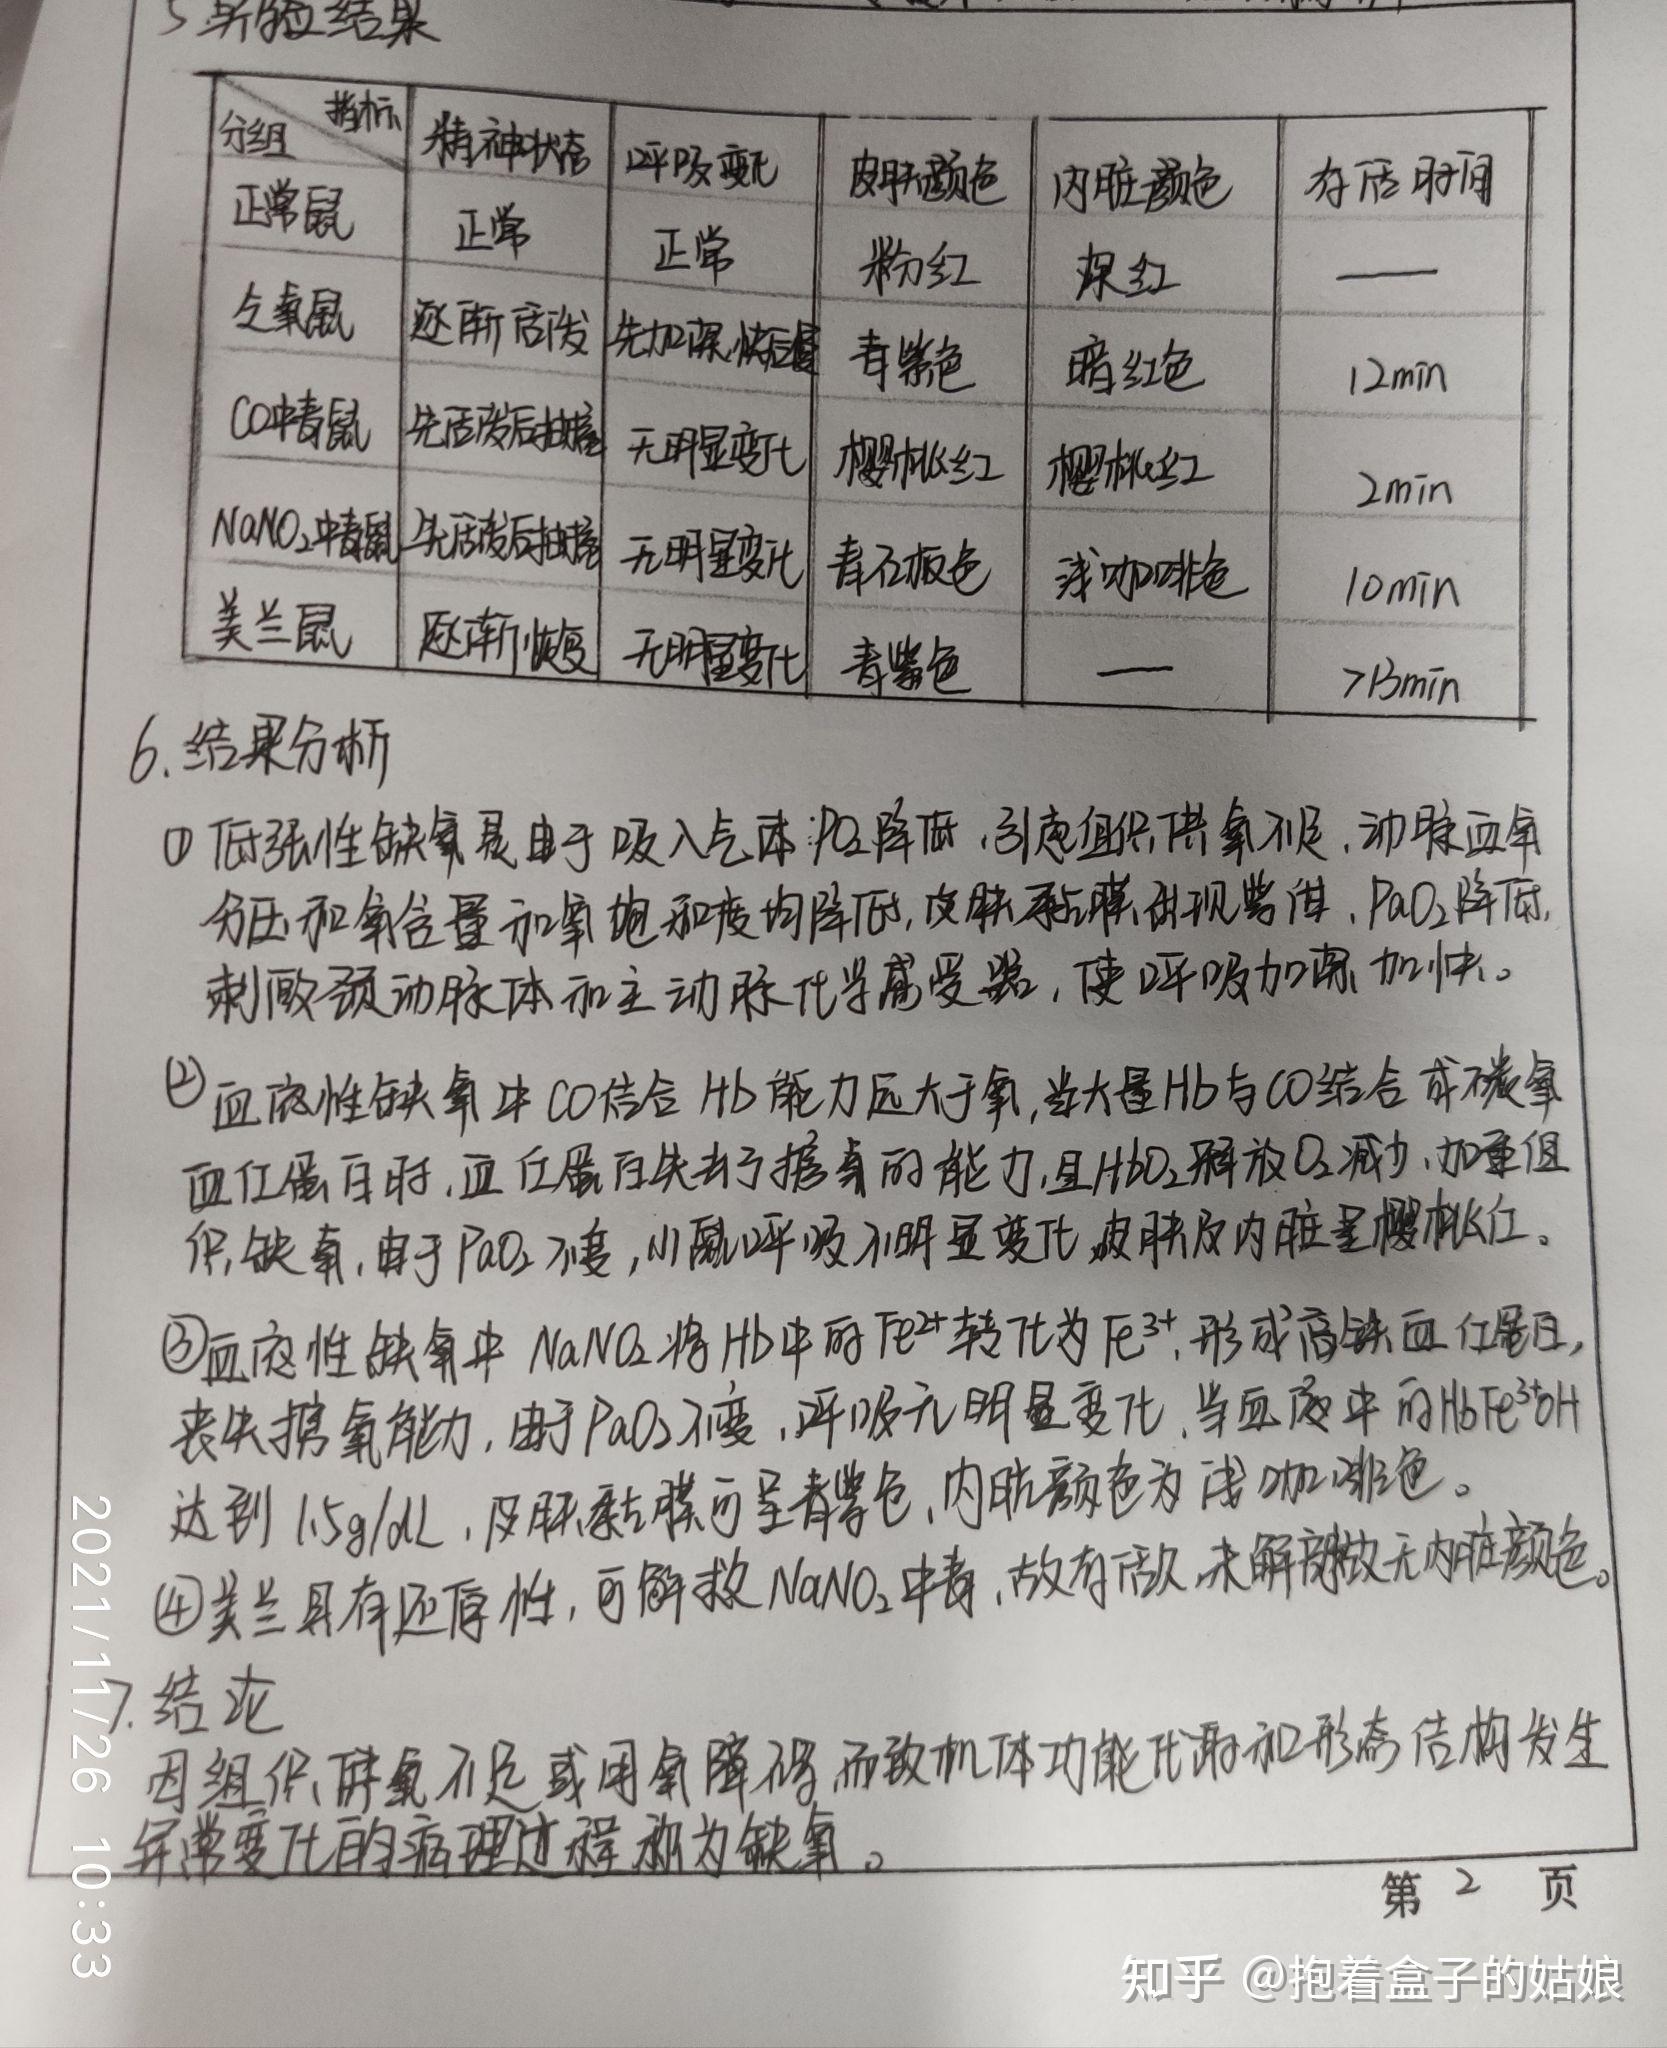 5 实验结果
指标
分组 精神状态 呼吸变化 皮肤颜色 内脏颜色 存活时间
正常鼠 正常 正常 粉红 深红 ——
乏氧鼠 逐渐活泼 先加深,快后慢 青紫色 暗红色 12min
CO中毒鼠 先活泼后抽搐 无明显变化 樱桃红 樱桃红 2min
NaNO₂中毒鼠 先活泼后抽搐 无明显变化 青石板色 浅咖啡色 10min
美兰鼠 逐渐恢复 无明显变化 青紫色 —— >13min
6.结果分析
① 低张性缺氧是由于吸入气体PO₂降低,引起组织供氧不足,动脉血氧
分压和氧含量和氧饱和度均降低,皮肤黏膜出现紫绀,PaO₂降低,
刺激颈动脉体和主动脉化学感受器,使呼吸加深加快。
② 血液性缺氧中CO结合Hb能力远大于氧,当大量Hb与CO结合成碳氧
血红蛋白时,血红蛋白失去了携氧的能力,且HbO₂释放O₂减少,加重组
织缺氧,由于PaO₂不变,小鼠呼吸不明显变化,皮肤及内脏呈樱桃红。
③血液性缺氧中NaNO₂将Hb中的Fe²⁺转化为Fe³⁺,形成高铁血红蛋白,
丧失携氧能力,由于PaO₂不变,呼吸无明显变化,当血液中的HbFe³⁺OH
达到1.5g/dL,皮肤黏膜可呈青紫色,内脏颜色为浅咖啡色。
④美兰具有还原性,可解救NaNO₂中毒,故存活久,未解剖故无内脏颜色。
7.结论
因组织供氧不足或用氧障碍,而致机体功能代谢和形态结构发生
异常变化的病理过程称为缺氧。
第 2 页
2021/11/26 10:33
知乎 @抱着盒子的姑娘